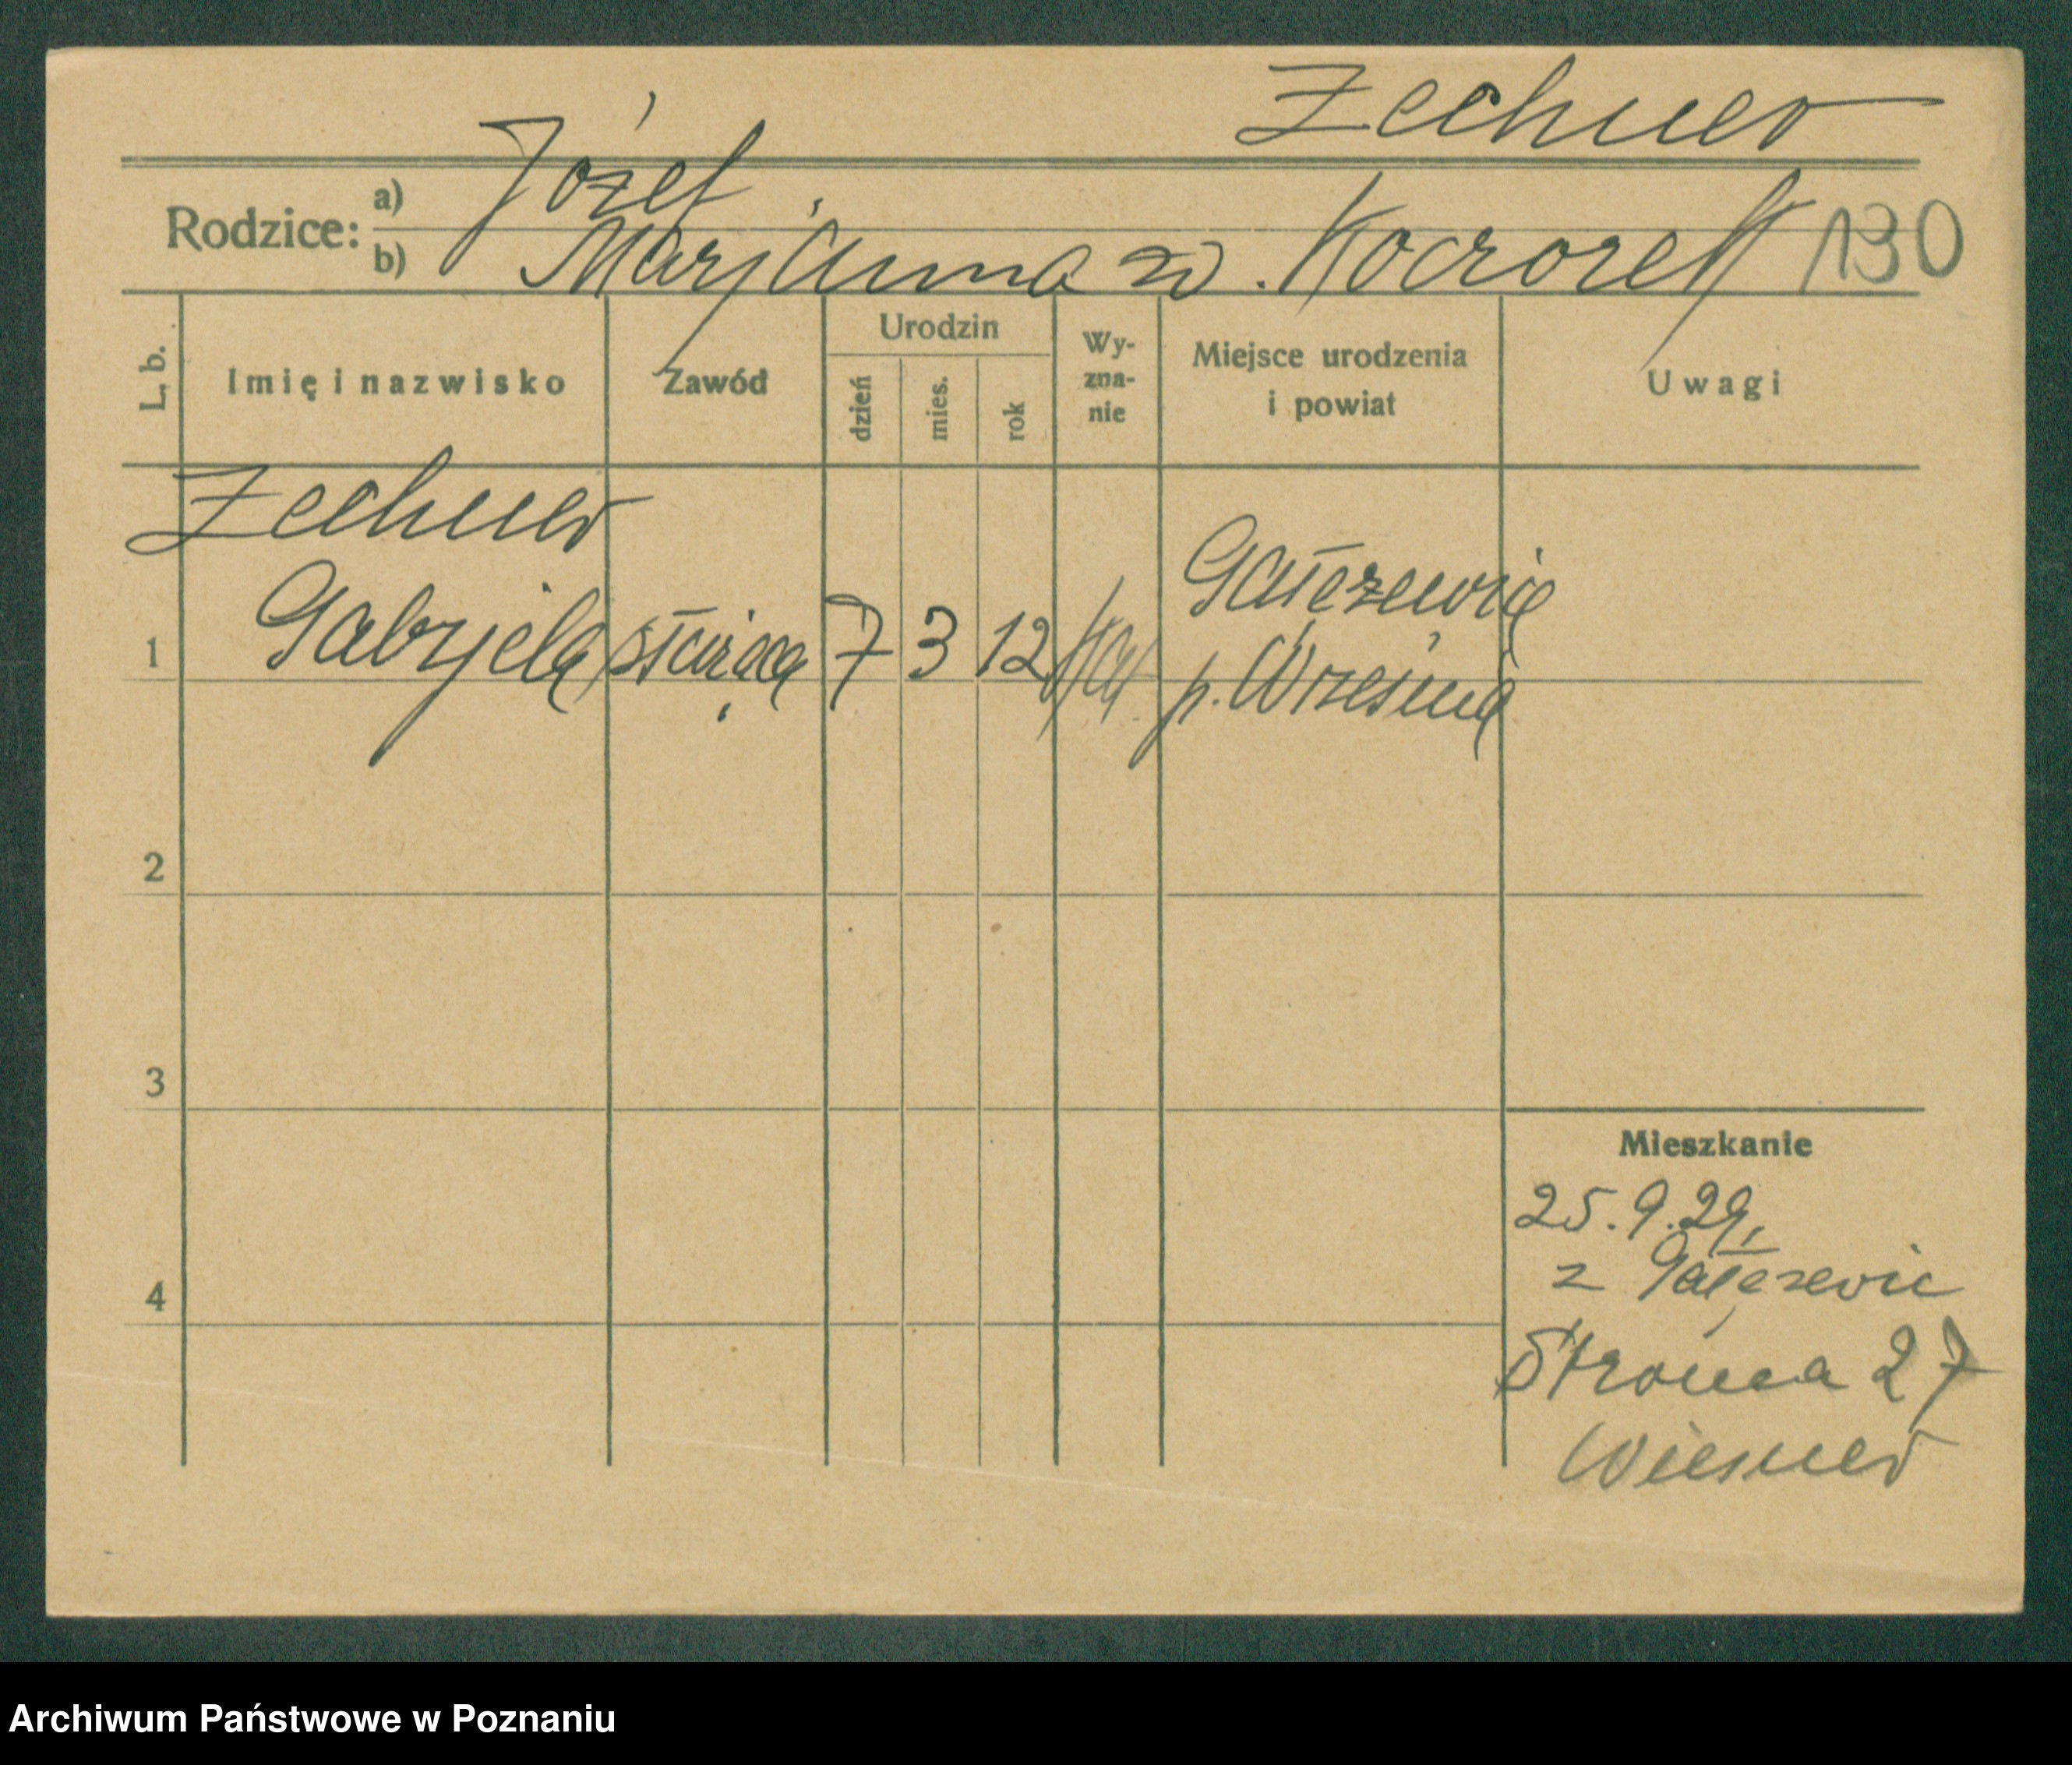 Zechner
Rodzice:
a) Józef
b) Marjanna z d. Kaczorek 130
L. b.
Imię i nazwisko
Zawód
Urodzin
dzień
mies.
rok
Wy-
zna-
nie
Miejsce urodzenia
i powiat
Uwagi
Zechner
1 Gabryela służąca 7 3 12 kat.
Gałęzewic
p. Września
2
3
4
Mieszkanie
25.9.29,
z Gałęzewic
Stroma 27
Wiesner
Archiwum Państwowe w Poznaniu